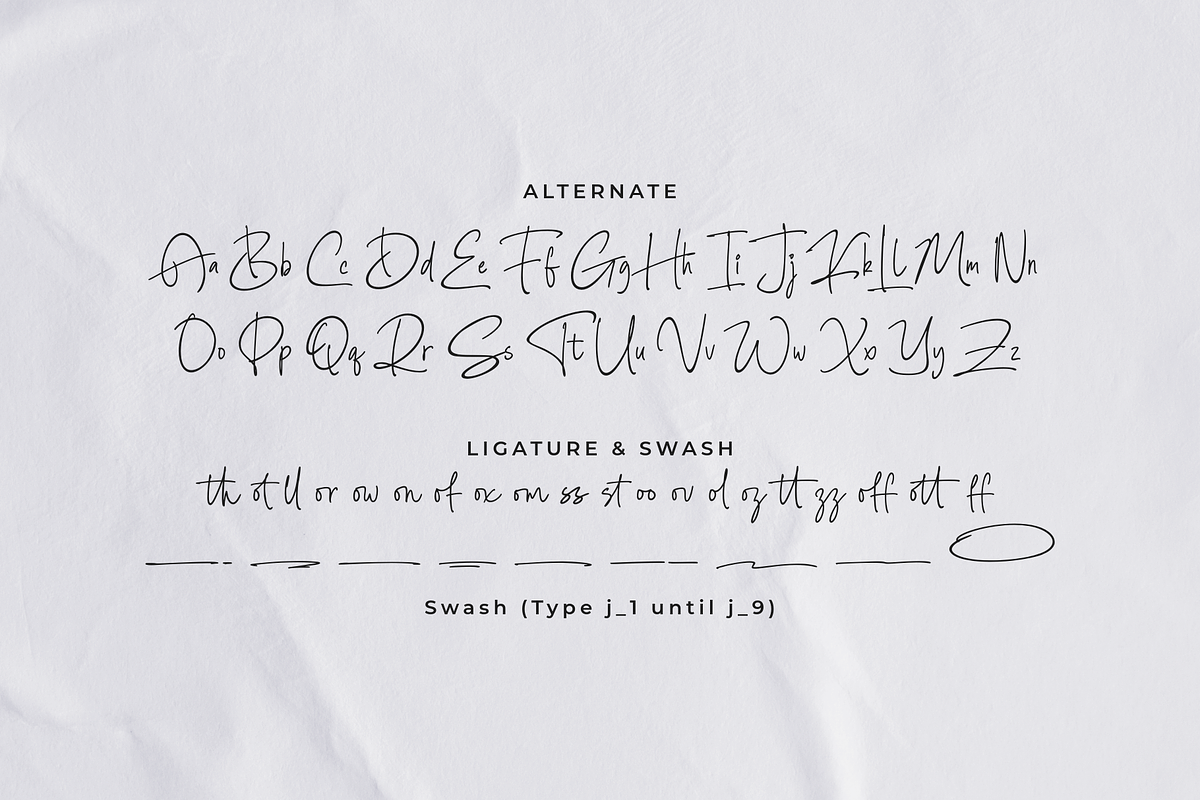 ALTERNATE
Aa Bb Cc Dd Ee Ff Gg Hh Ii Jj Kk Ll Mm Nn
Oo Pp Qq Rr Ss Tt Uu Vv Ww Xx Yy Zz
LIGATURE & SWASH
th ot ll or ow on of ox om ss st oo ov ol oz tt zz off ott ff
Swash (Type j_1 until j_9)